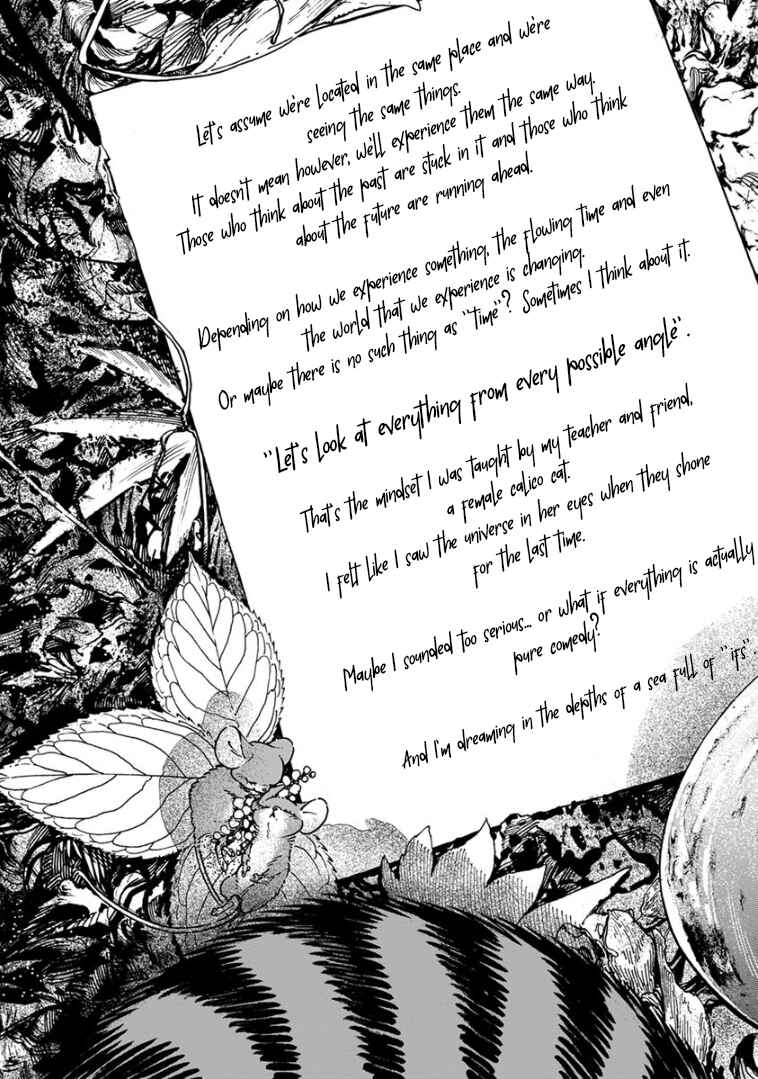 Let's assume we're located in the same place and we're
seeing the same things.
It doesn't mean however, we'll experience them the same way.
Those who think about the past are stuck in it and those who think
about the future are running ahead.
Depending on how we experience something, the flowing time and even
the world that we experience is changing.
Or maybe there is no such thing as "time"? Sometimes I think about it.
"Let's look at everything from every possible angle".
That's the mindset I was taught by my teacher and friend,
a female calico cat.
I felt like I saw the universe in her eyes when they shone
for the last time.
Maybe I sounded too serious... or what if everything is actually
pure comedy?
And I'm dreaming in the depths of a sea full of "ifs".